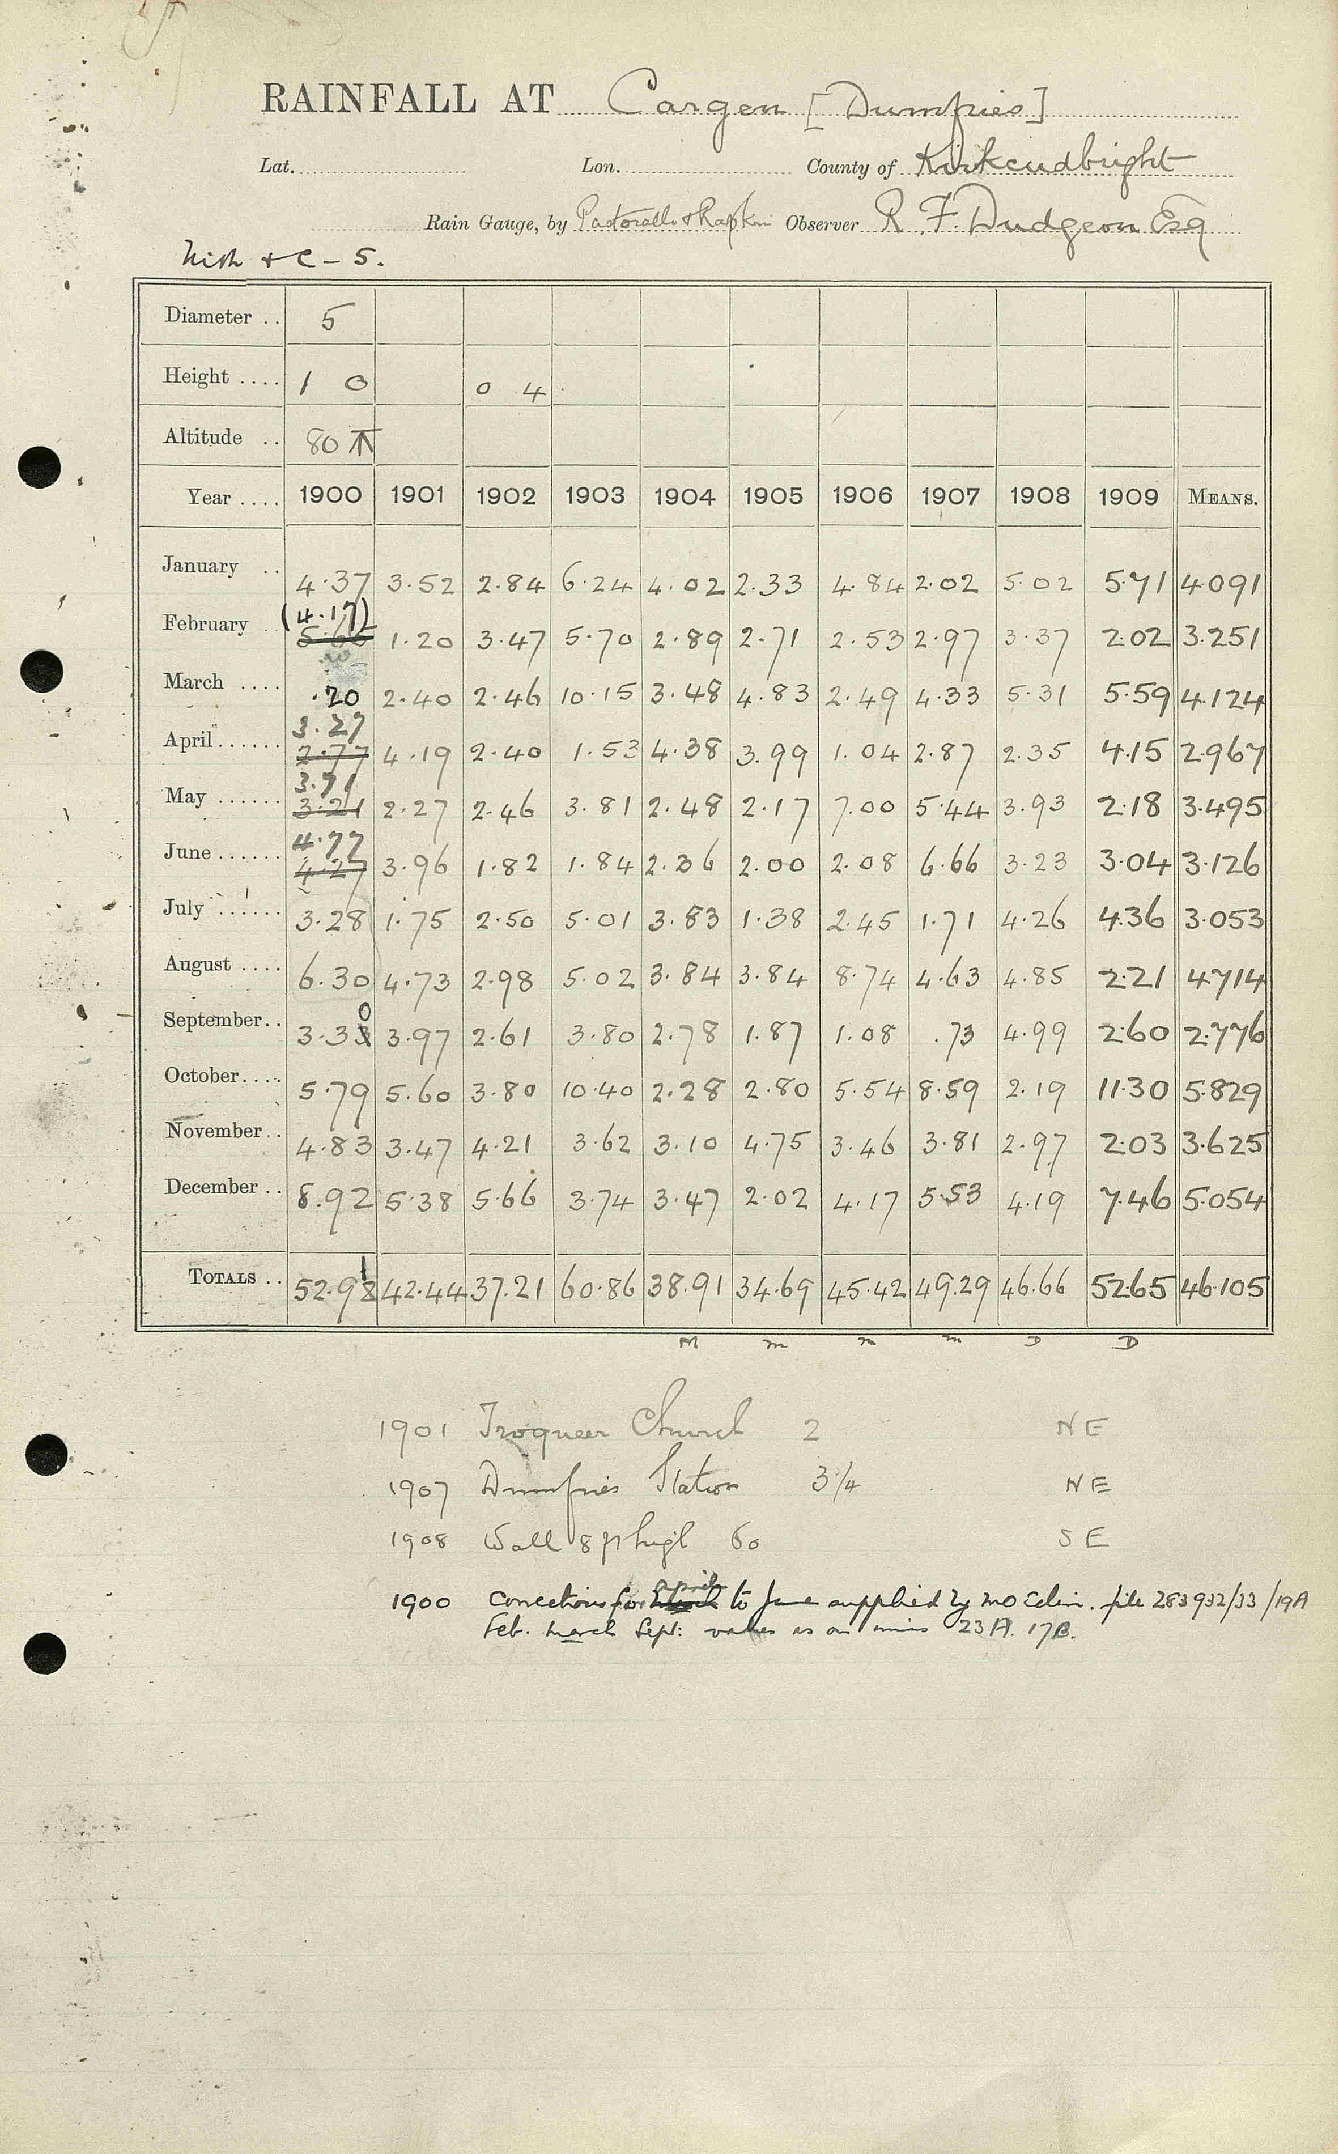 RAINFALL AT Cargen [Dumfries]
Lat. Lon. County of Kirkcudbright
Rain Gauge, by Pastorelli & Rapkin Observer R. F. Dudgeon Esq
- 5.
Diameter .. 5
Height .... 1 0 0 4
Altitude .. 80
Year .... 1900 1901 1902 1903 1904 1905 1906 1907 1908 1909 MEANS.
January .. 4.37 3.52 2.84 6.24 4.02 2.33 4.84 2.02 5.02 5.71 4.091
(4.17)
February 1.20 3.47 5.70 2.89 2.71 2.53 2.97 3.37 2.02 3.251
March .... .20 2.40 2.46 10.15 3.48 4.83 2.49 4.33 5.31 5.59 4.124
3.27
April ...... 2.77 4.19 2.40 1.53 4.38 3.99 1.04 2.87 2.35 4.15 2.967
3.71
May ...... 3.21 2.27 2.46 3.81 2.48 2.17 7.00 5.44 3.93 2.18 3.495
4.77
June ...... 4.27 3.96 1.82 1.84 2.36 2.00 2.08 6.66 3.23 3.04 3.126
July ...... 3.28 1.75 2.50 5.01 3.83 1.38 2.45 1.71 4.26 4.36 3.053
August .... 6.30 4.73 2.98 5.02 3.84 3.84 8.74 4.63 4.85 2.21 4714
0
September .. 3.38 3.97 2.61 3.80 2.78 1.87 1.08 .73 4.99 2.60 2.776
October .... 5.79 5.60 3.80 10.40 2.28 2.80 5.54 8.59 2.19 11.30 5.829
November .. 4.83 3.47 4.21 3.62 3.10 4.75 3.46 3.81 2.97 2.03 3.625
December .. 8.92 5.38 5.66 3.74 3.47 2.02 4.17 5.53 4.19 7.46 5.054
1
TOTALS .. 52.98 42.44 37.21 60.86 38.91 34.69 45.42 49.29 46.66 52.65 46.105
M m m m D D
1901 Troqueer Church 2 NE
1907 Dumfries Station 3 1/4 NE
1908 Wall 8 ft high 60 SE
1900 corrections for April to June supplied by MO Edin. file 283932/33/19A
Feb. March Sept: values as on 23A. 17B.